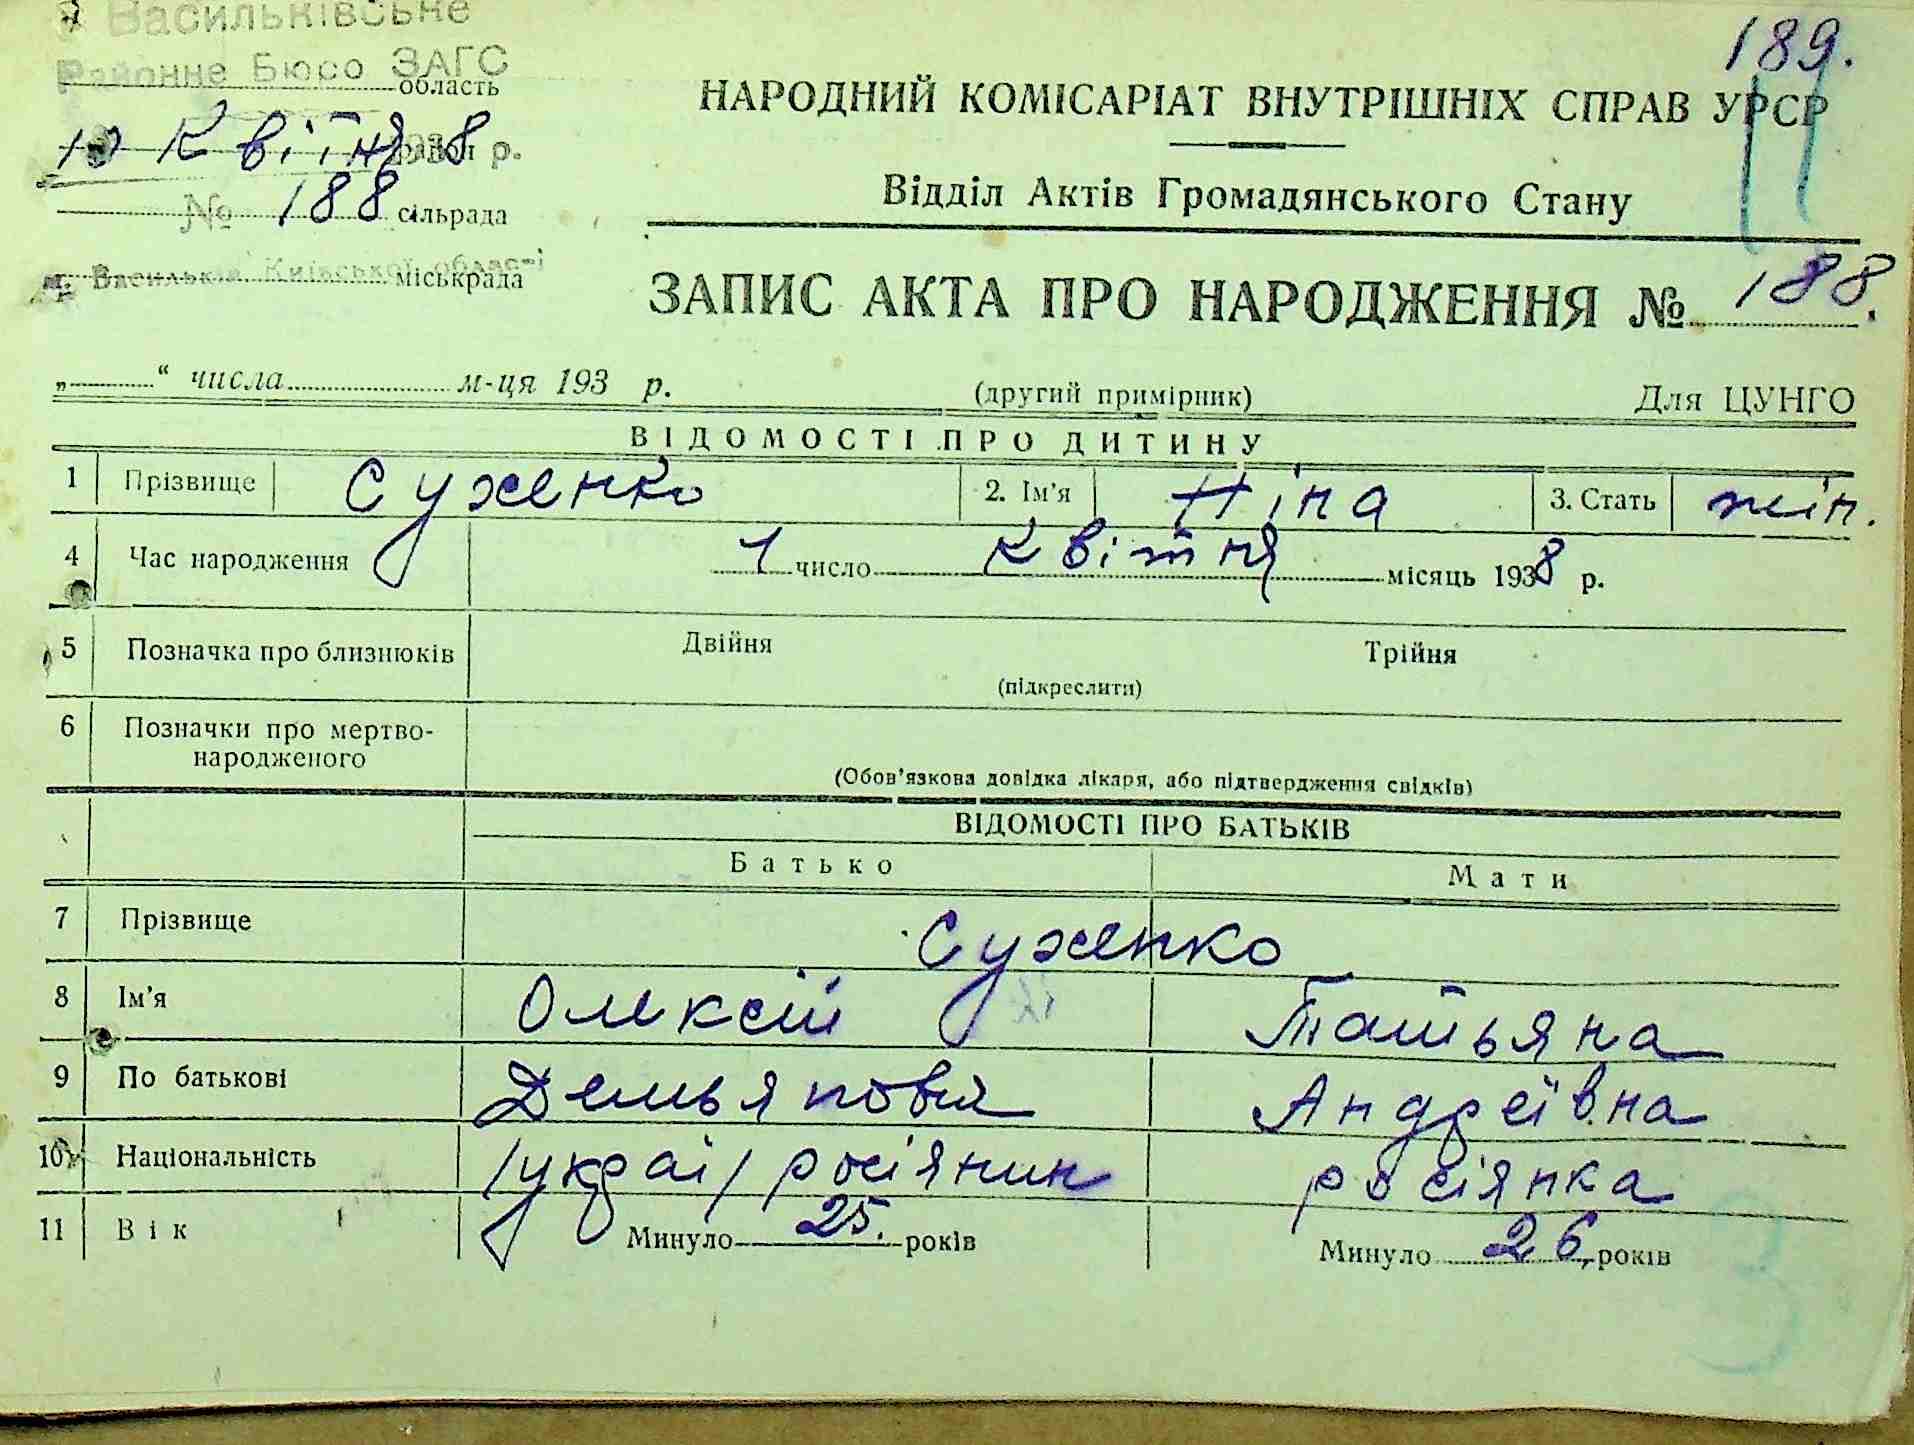 Васильківське
Районне Бюро ЗАГС
область
10 Квітня 1938 р.
район
№ 188 сільрада
м. Васильків Київської області
міськрада
189.
НАРОДНИЙ КОМІСАРІАТ ВНУТРІШНІХ СПРАВ УРСР
Відділ Актів Громадянського Стану
ЗАПИС АКТА ПРО НАРОДЖЕННЯ № 188.
„ “ числа м-ця 193 р.
(другий примірник)
Для ЦУНГО
ВІДОМОСТІ ПРО ДИТИНУ
1 Прізвище Суженко 2. Ім'я Ніна 3. Стать жін.
4 Час народження 1 число Квітня місяць 1938 р.
5 Позначка про близнюків Двійня Трійня
(підкреслити)
6 Позначки про мертво-
народженого
(Обов'язкова довідка лікаря, або підтвердження свідків)
ВІДОМОСТІ ПРО БАТЬКІВ
Батько Мати
7 Прізвище Суженко
8 Ім'я Олексій Татьяна
9 По батькові Андреївна
10 Національність /украї/ росіянин росіянка
11 Вік Минуло 25. років Минуло 26. років
3